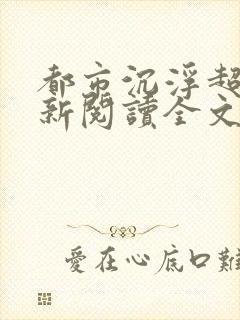 都市沉浮超
新閱讀全文
愛在心底口難